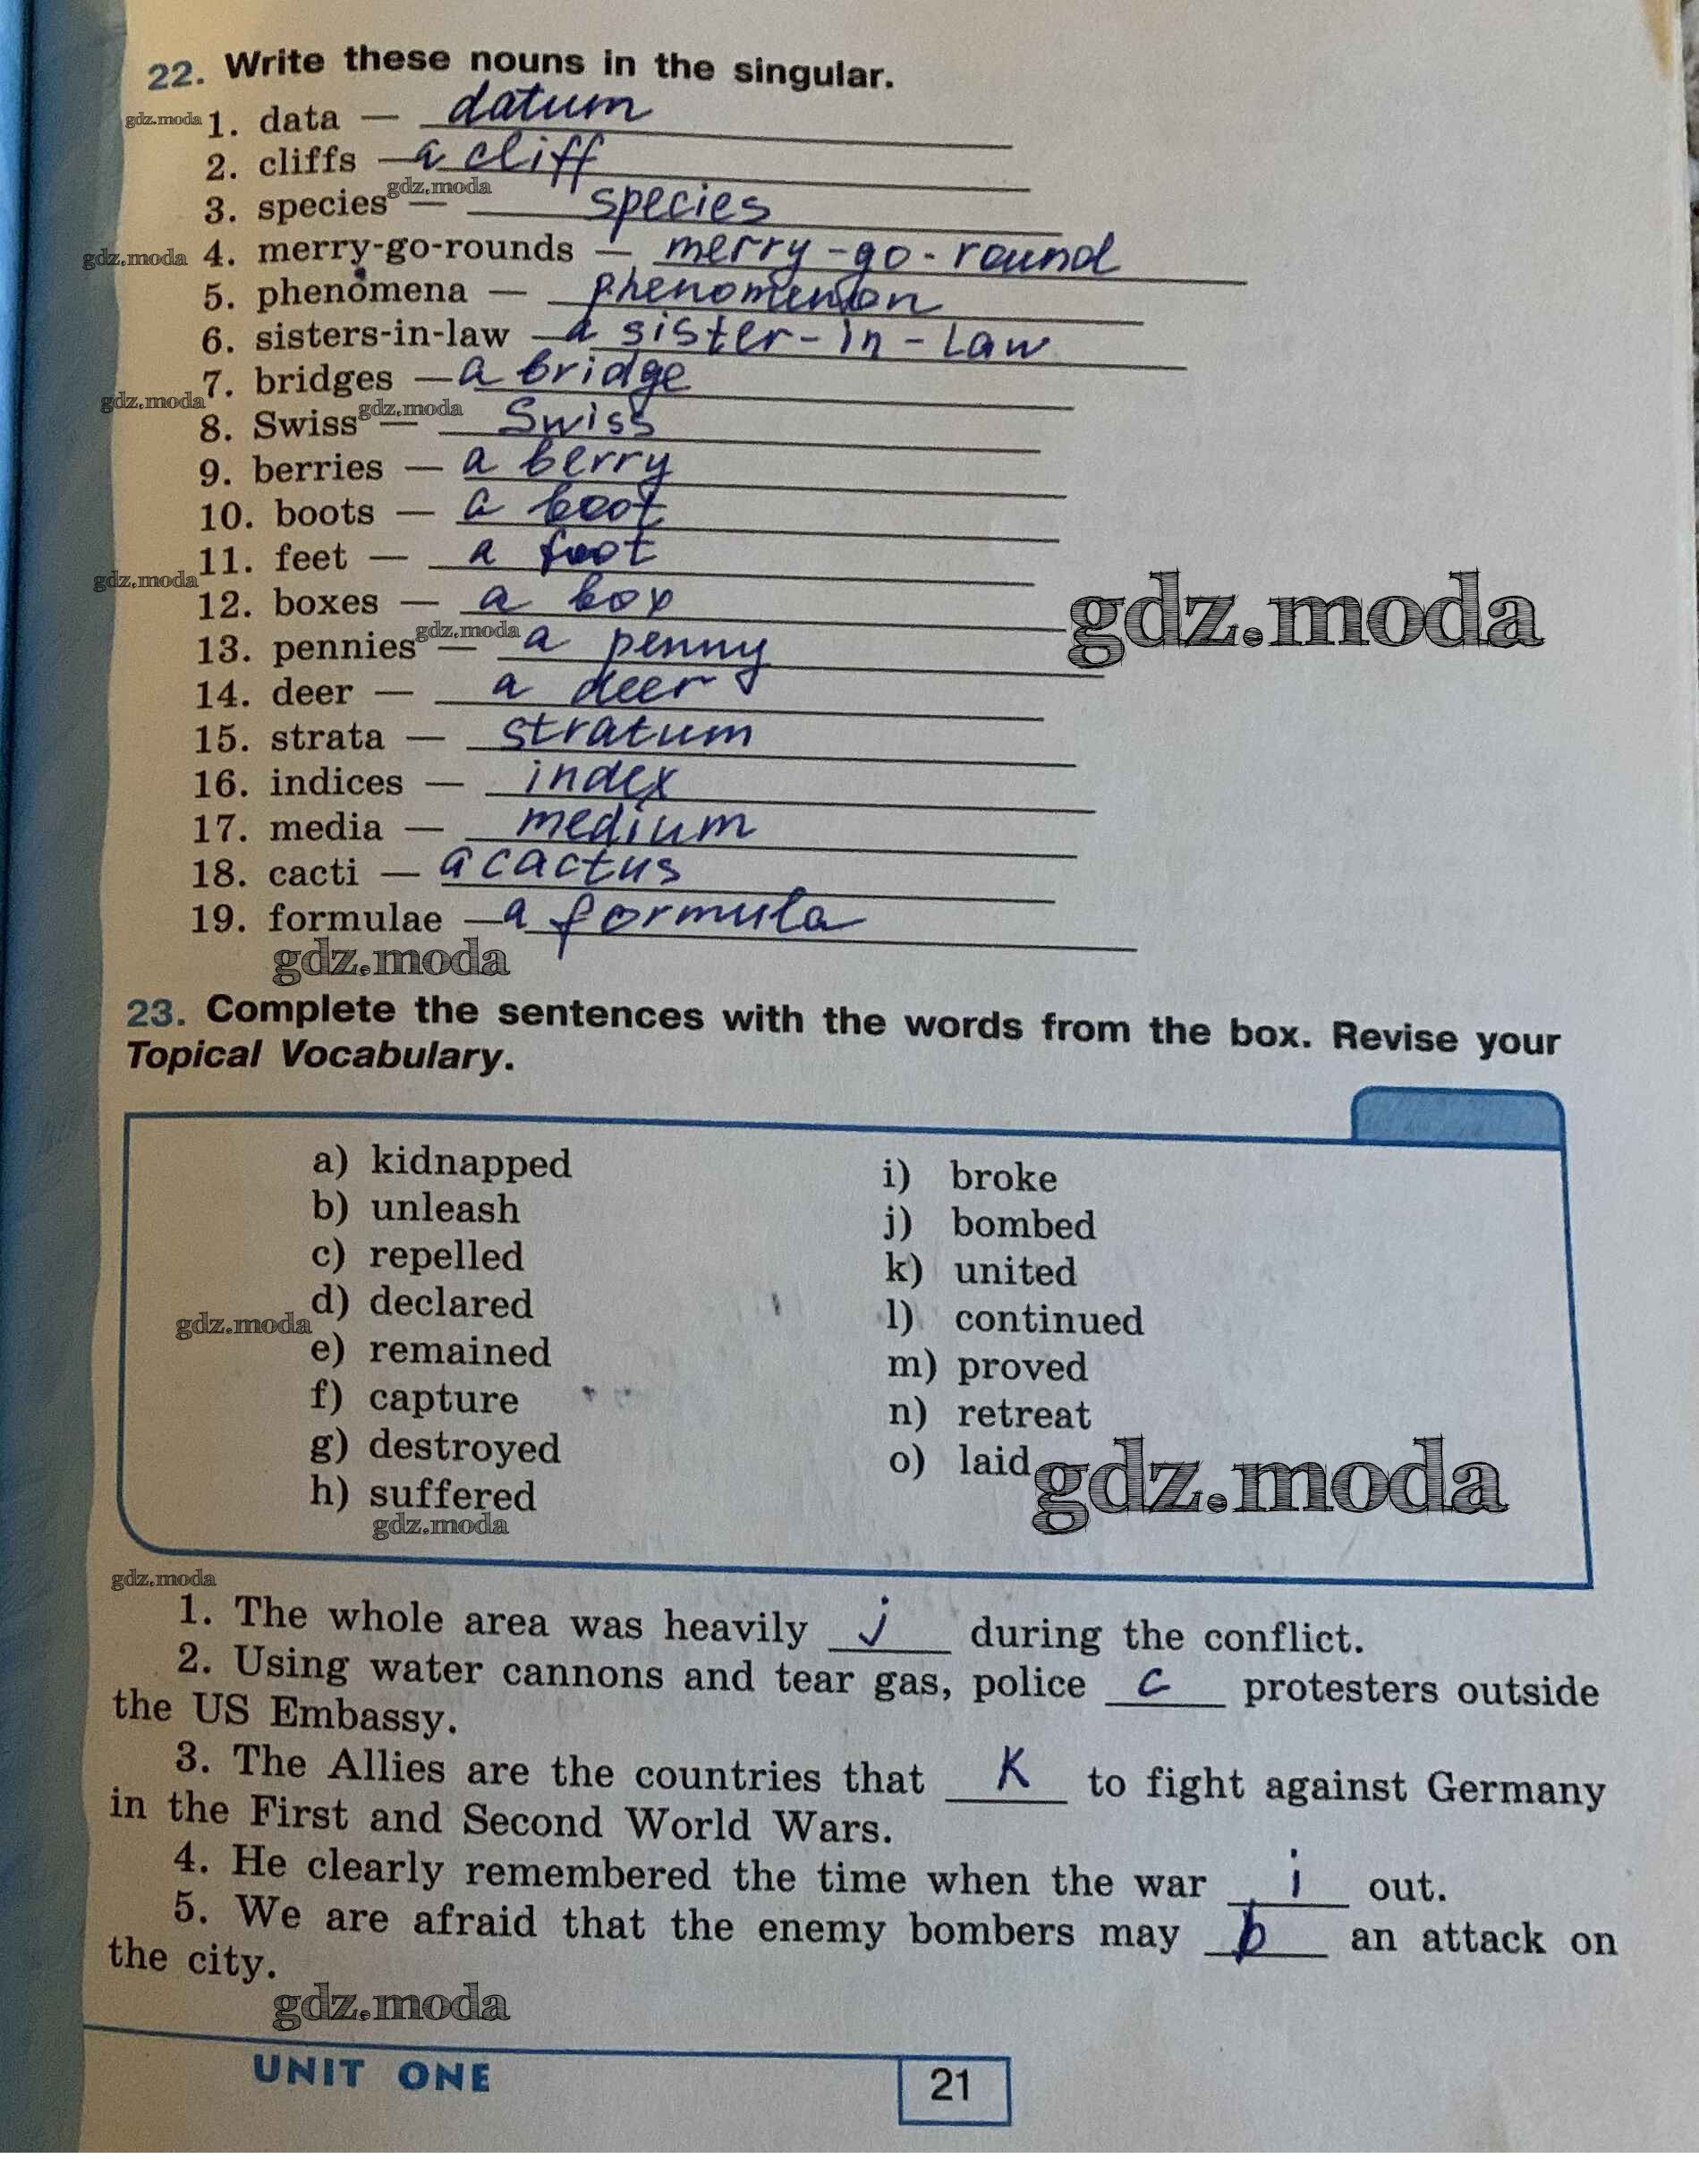 22. Write these nouns in the singular.
gdz.moda 1. data — datum
2. cliffs — a cliff
gdz.moda
3. species — species
gdz.moda 4. merry-go-rounds — merry-go-round
5. phenomena — phenomenon
6. sisters-in-law — a sister-in-law
7. bridges — a bridge
gdz.moda gdz.moda
8. Swiss — Swiss
9. berries — a berry
10. boots — a boot
11. feet — a foot
gdz.moda
12. boxes — a box
gdz.moda
gdz.moda
13. pennies — a penny
14. deer — a deer
15. strata — stratum
16. indices — index
17. media — medium
18. cacti — a cactus
19. formulae — a formula
gdz.moda
23. Complete the sentences with the words from the box. Revise your
Topical Vocabulary.
a) kidnapped
b) unleash
c) repelled
d) declared
gdz.moda
e) remained
f) capture
g) destroyed
h) suffered
gdz.moda
i) broke
j) bombed
k) united
l) continued
m) proved
n) retreat
o) laid
gdz.moda
gdz.moda
1. The whole area was heavily j during the conflict.
2. Using water cannons and tear gas, police c protesters outside
the US Embassy.
3. The Allies are the countries that K to fight against Germany
in the First and Second World Wars.
4. He clearly remembered the time when the war i out.
5. We are afraid that the enemy bombers may b an attack on
the city.
gdz.moda
UNIT ONE
21